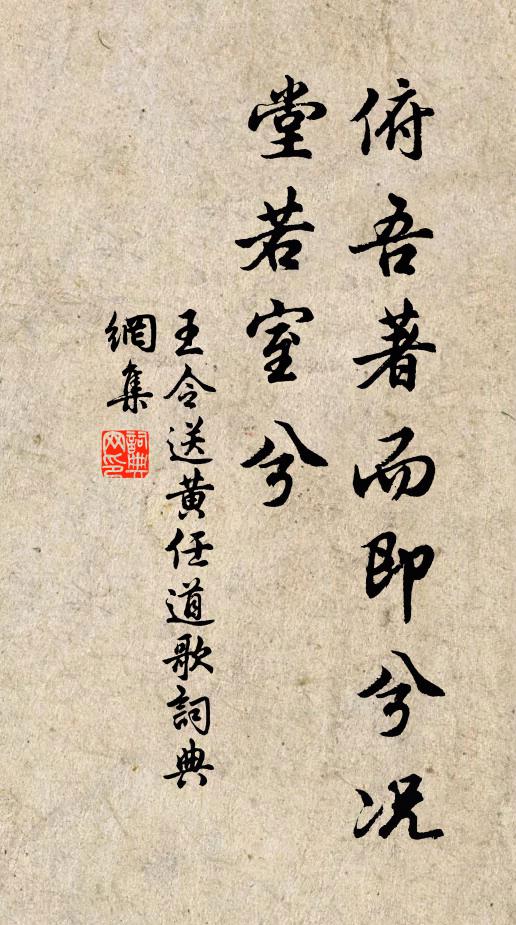 俯吾著而即兮况
堂若室兮
王令送黄任道歌詞典
網集
詞典
网印